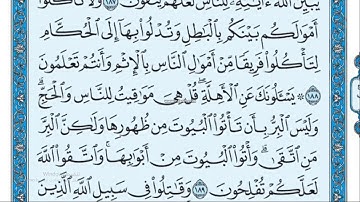 يُبَيِّنُ ٱللَّهُ ءَايَٰتِهِۦ لِلنَّاسِ لَعَلَّهُمْ يَتَّقُونَ ١٨٧ وَلَا تَأْكُلُوٓا۟
أَمْوَٰلَكُم بَيْنَكُم بِٱلْبَٰطِلِ وَتُدْلُوا۟ بِهَآ إِلَى ٱلْحُكَّامِ
لِتَأْكُلُوا۟ فَرِيقًا مِّنْ أَمْوَٰلِ ٱلنَّاسِ بِٱلْإِثْمِ وَأَنتُمْ تَعْلَمُونَ
١٨٨ يَسْـَٔلُونَكَ عَنِ ٱلْأَهِلَّةِ ۖ قُلْ هِىَ مَوَٰقِيتُ لِلنَّاسِ وَٱلْحَجِّ ۗ
وَلَيْسَ ٱلْبِرُّ بِأَن تَأْتُوا۟ ٱلْبُيُوتَ مِن ظُهُورِهَا وَلَٰكِنَّ ٱلْبِرَّ
مَنِ ٱتَّقَىٰ ۗ وَأْتُوا۟ ٱلْبُيُوتَ مِنْ أَبْوَٰبِهَا ۚ وَٱتَّقُوا۟ ٱللَّهَ
لَعَلَّكُمْ تُفْلِحُونَ ١٨٩ وَقَٰتِلُوا۟ فِى سَبِيلِ ٱللَّهِ ٱلَّذِينَ